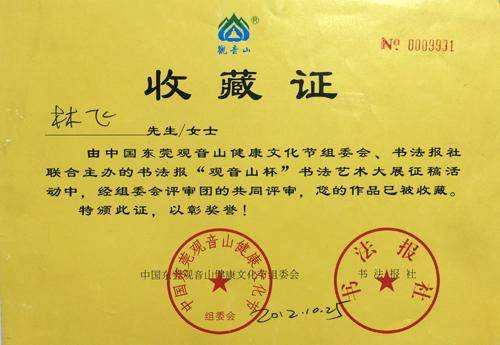 观音山
No 0009931
收藏证
林飞 先生/女士
由中国东莞观音山健康文化节组委会、书法报社
联合主办的书法报“观音山杯”书法艺术大展征稿活
动中，经组委会评审团的共同评审，您的作品已被收藏。
特颁此证，以彰奖誉！
中国东莞观音山健康文化节组委会 书法报社
中国东莞观音山健康文化节
组委会
书法报社
2012.10.25